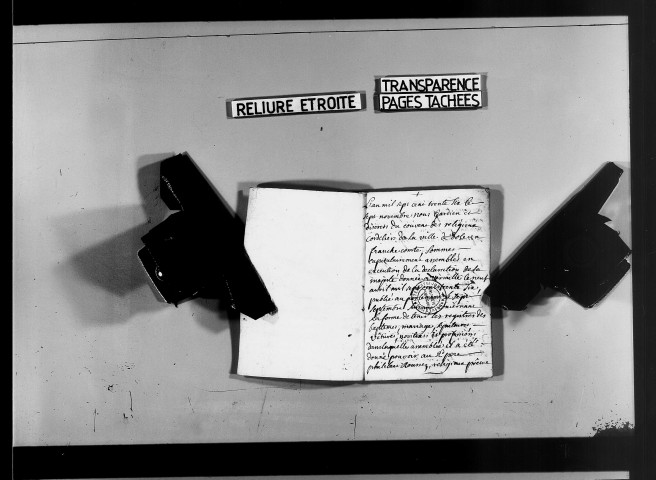 RELIURE ETROITE
TRANSPARENCE
PAGES TACHEES
L'an mil sept cent trente six le
sept novembre nous gardien et
discrets du couvent des religieux
cordeliers de la ville de dole en
franche comté, sommes
capitulairement assemblés en
execution de la declaration de sa
majesté donnée a versaille le neuf
avril mil sept cent trente six,
publié au parlement
septembre
la forme de tenir les registres des
baptemes, mariage, sepultures
vetures, novitiats et professions
dans laquelle assemblée il a été
donné pouvoir au R. pere
religieux prêtre